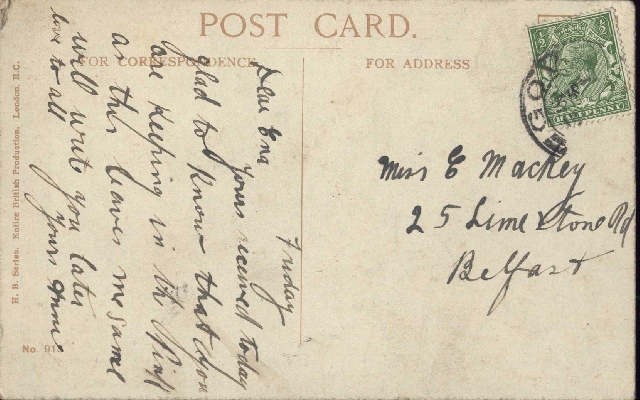 POST CARD.
FOR CORRESPONDENCE
FOR ADDRESS
Friday
Dear Ena
yours received today
glad to know that you
are keeping in the Pink
as this leaves me same
will write you later
love to all
yours
Miss E Mackey
25 Limestone Rd
Belfast
H. B. Series. Entire British Production, London, E.C.
No. 91